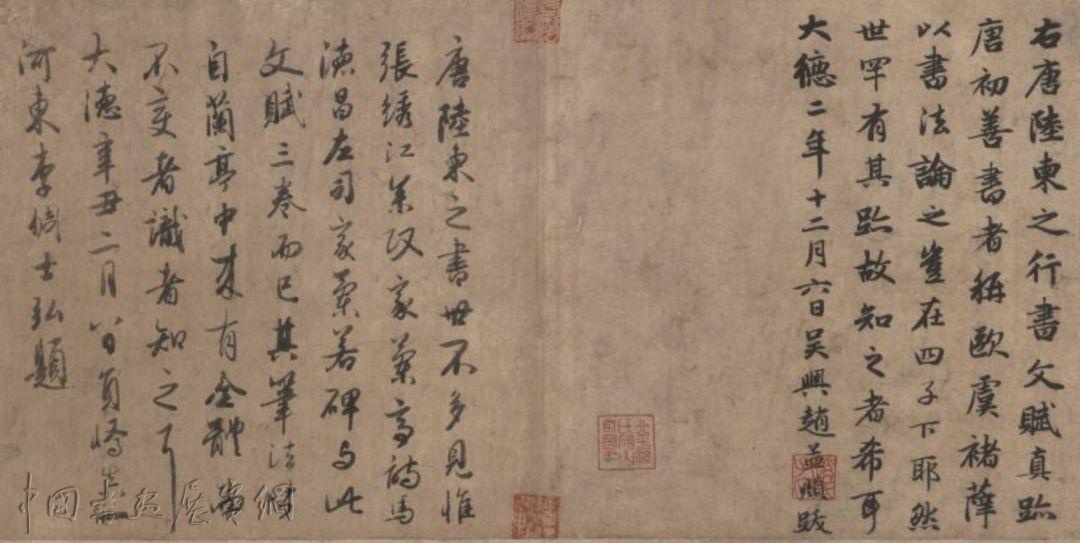 右唐陸柬之行書文賦真跡
唐初善書者稱歐虞褚薛
以書法論之豈在四子下耶然
世罕有其跡故知之者希耳
大德二年十二月六日吳興趙孟頫跋
唐陸柬之書世不多見惟
張綉江參政家蘭亭詩馬
德昌左司家蘭若碑与此
文賦三卷而已其筆法
自蘭亭中來有全體
不變者識者知之耳
大德辛丑二月八日員嶠
河東李倜士弘題